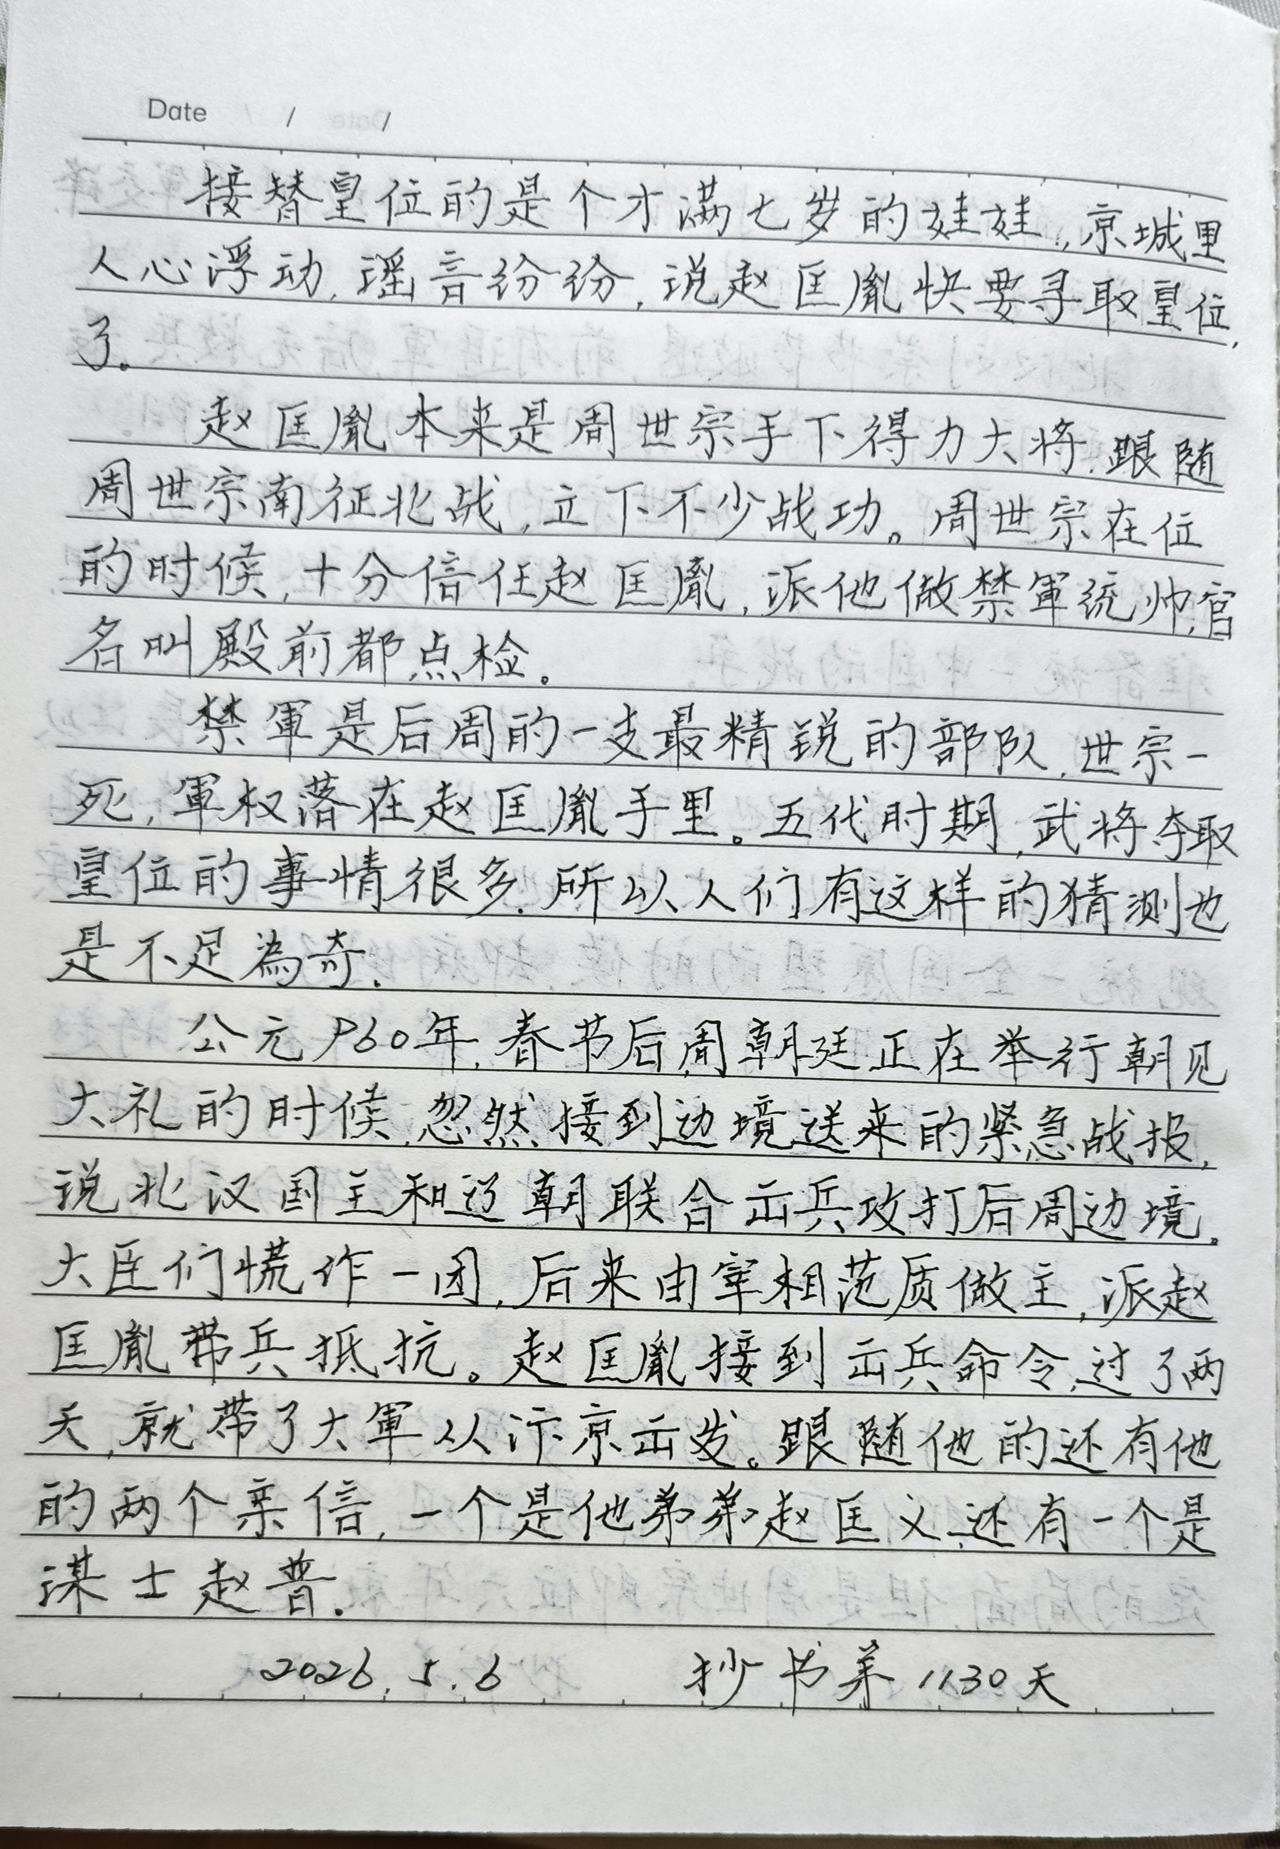 Date / /
接替皇位的是个才满七岁的娃娃,京城里
人心浮动,谣音纷纷,说赵匡胤快要寻取皇位
了。
赵匡胤本来是周世宗手下得力大将.跟随
周世宗南征北战,立下不少战功。周世宗在位
的时候,十分信任赵匡胤,派他做禁軍统帅,官
名叫殿前都点检。
禁軍是后周的一支最精锐的部队,世宗一
死,軍权落在赵匡胤手里。五代时期,武将夺取
皇位的事情很多.所以人们有这样的猜测也
是不足為奇.
公元960年,春节后周朝廷正在举行朝见
大礼的时候,忽然接到边境送来的紧急战报,
说北汉国主和辽朝联合出兵攻打后周边境。
大臣们慌作一团,后来由宰相范质做主,派赵
匡胤带兵抵抗。赵匡胤接到出兵命令,过了两
天,就带了大軍从汴京出发。跟随他的还有他
的两个亲信,一个是他弟弟赵匡义,还有一个是
谋士赵普.
2026.5.6 抄书第1130天